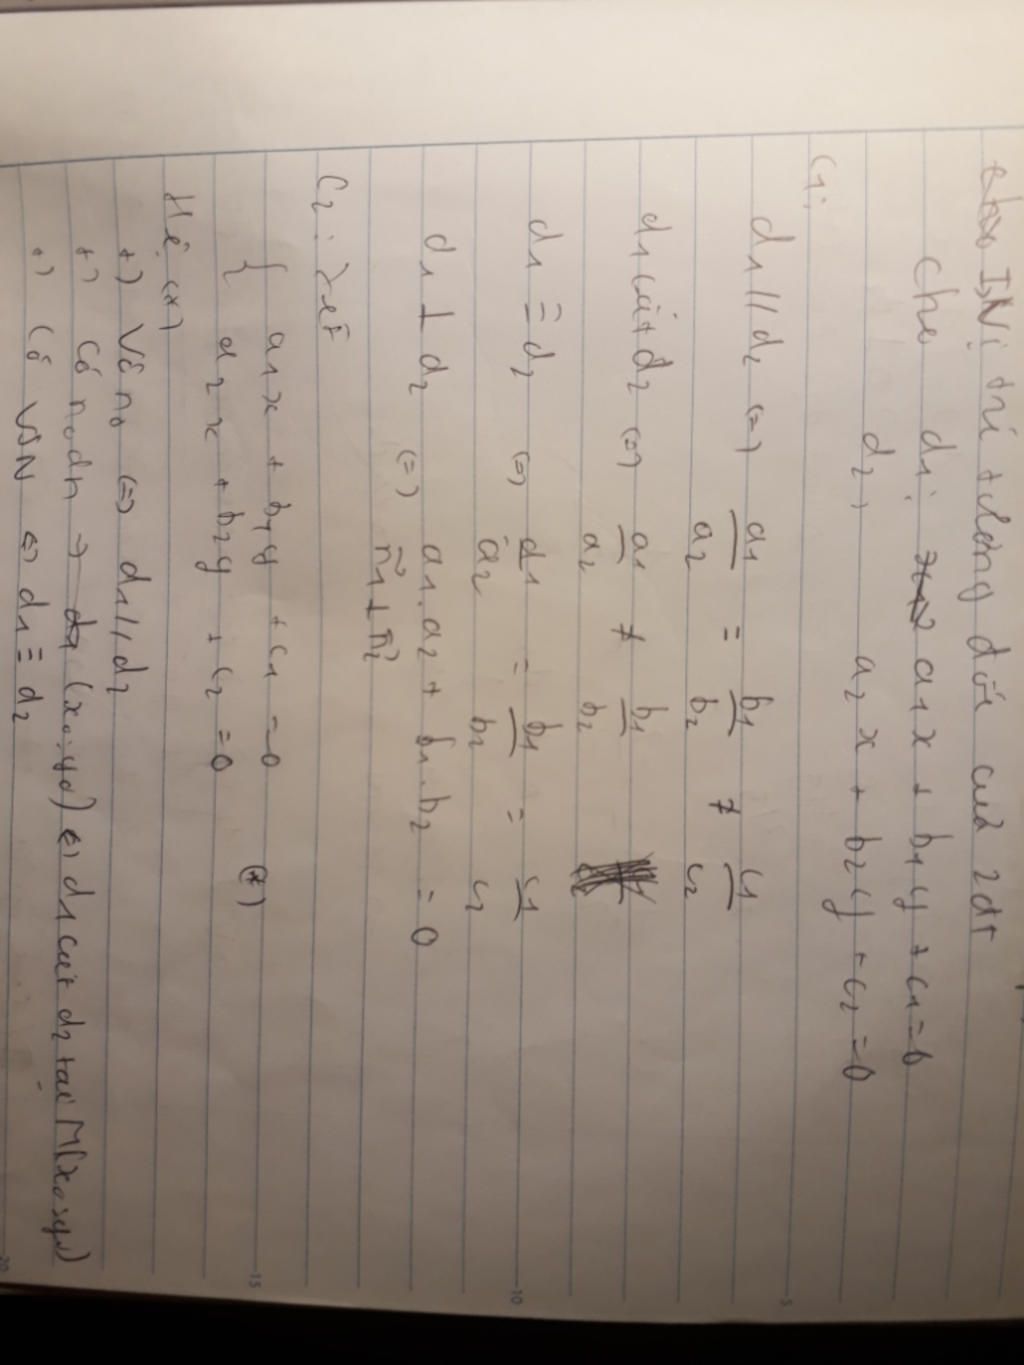 I, Vị trí tương đối của 2đt
Cho d1: a1x + b1y + c1 = 0
d2, a2x + b2y + c2 = 0
C1:
d1 // d2 (=) a1/a2 = b1/b2 ≠ c1/c2
d1 cắt d2 (=) a1/a2 ≠ b1/b2
d1 ≡ d2 (=) a1/a2 = b1/b2 = c1/c2
d1 ⊥ d2 (=) a1.a2 + b1.b2 = 0
n1 ⊥ n2
C2: Xét
{ a1x + b1y + c1 = 0
a2x + b2y + c2 = 0 (*)
Hệ (*)
+) Vô no (=) d1 // d2
+) Có no dn → (x0; y0) (=) d1 cắt d2 tại M(x0; y0)
+) Có VSN (=) d1 ≡ d2
5
10
15
20